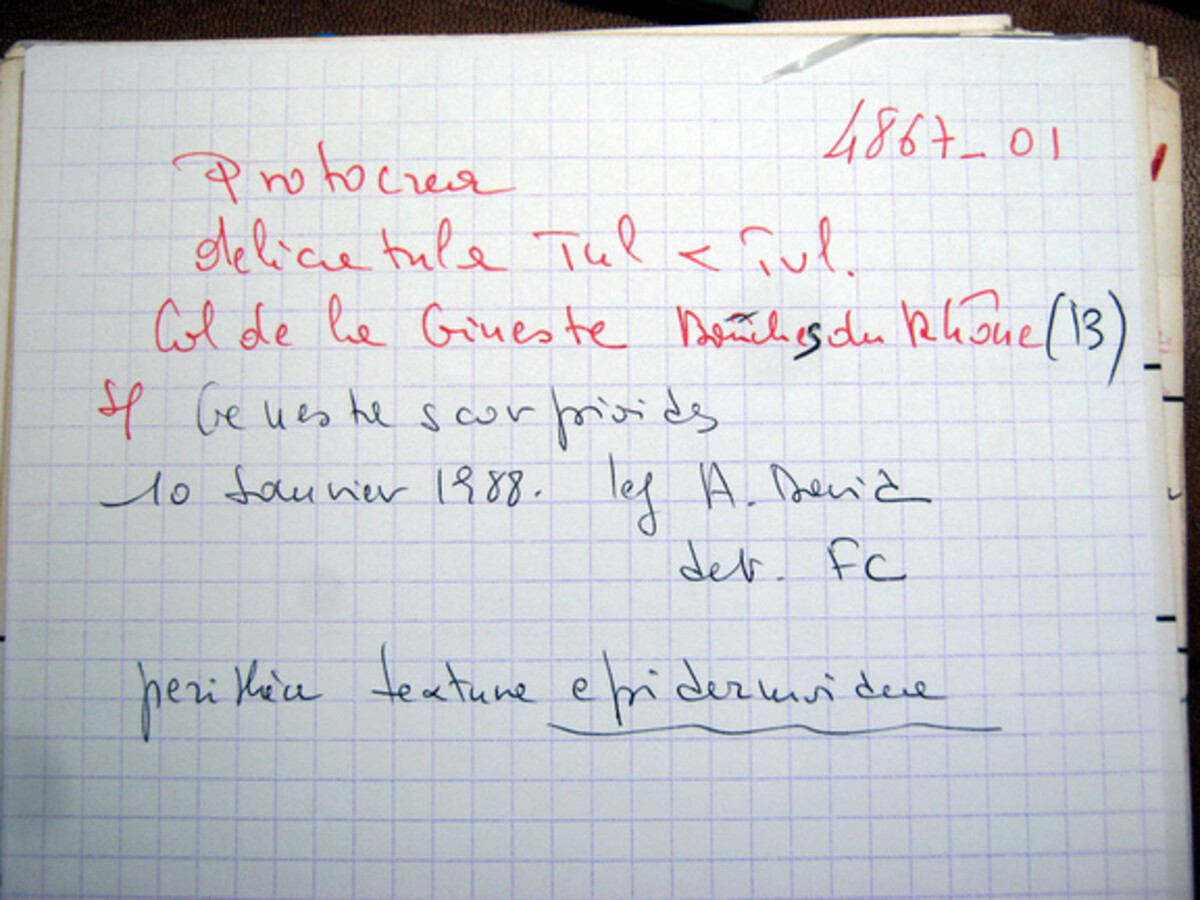 4867_01
Protocrea
delicatula Tul & Tul.
Col de la Gineste Bouches du Rhône (13)
S/ Genesta scorpioides
10 Janvier 1988. leg A. David
det. FC
perithecia textura epidermoidea